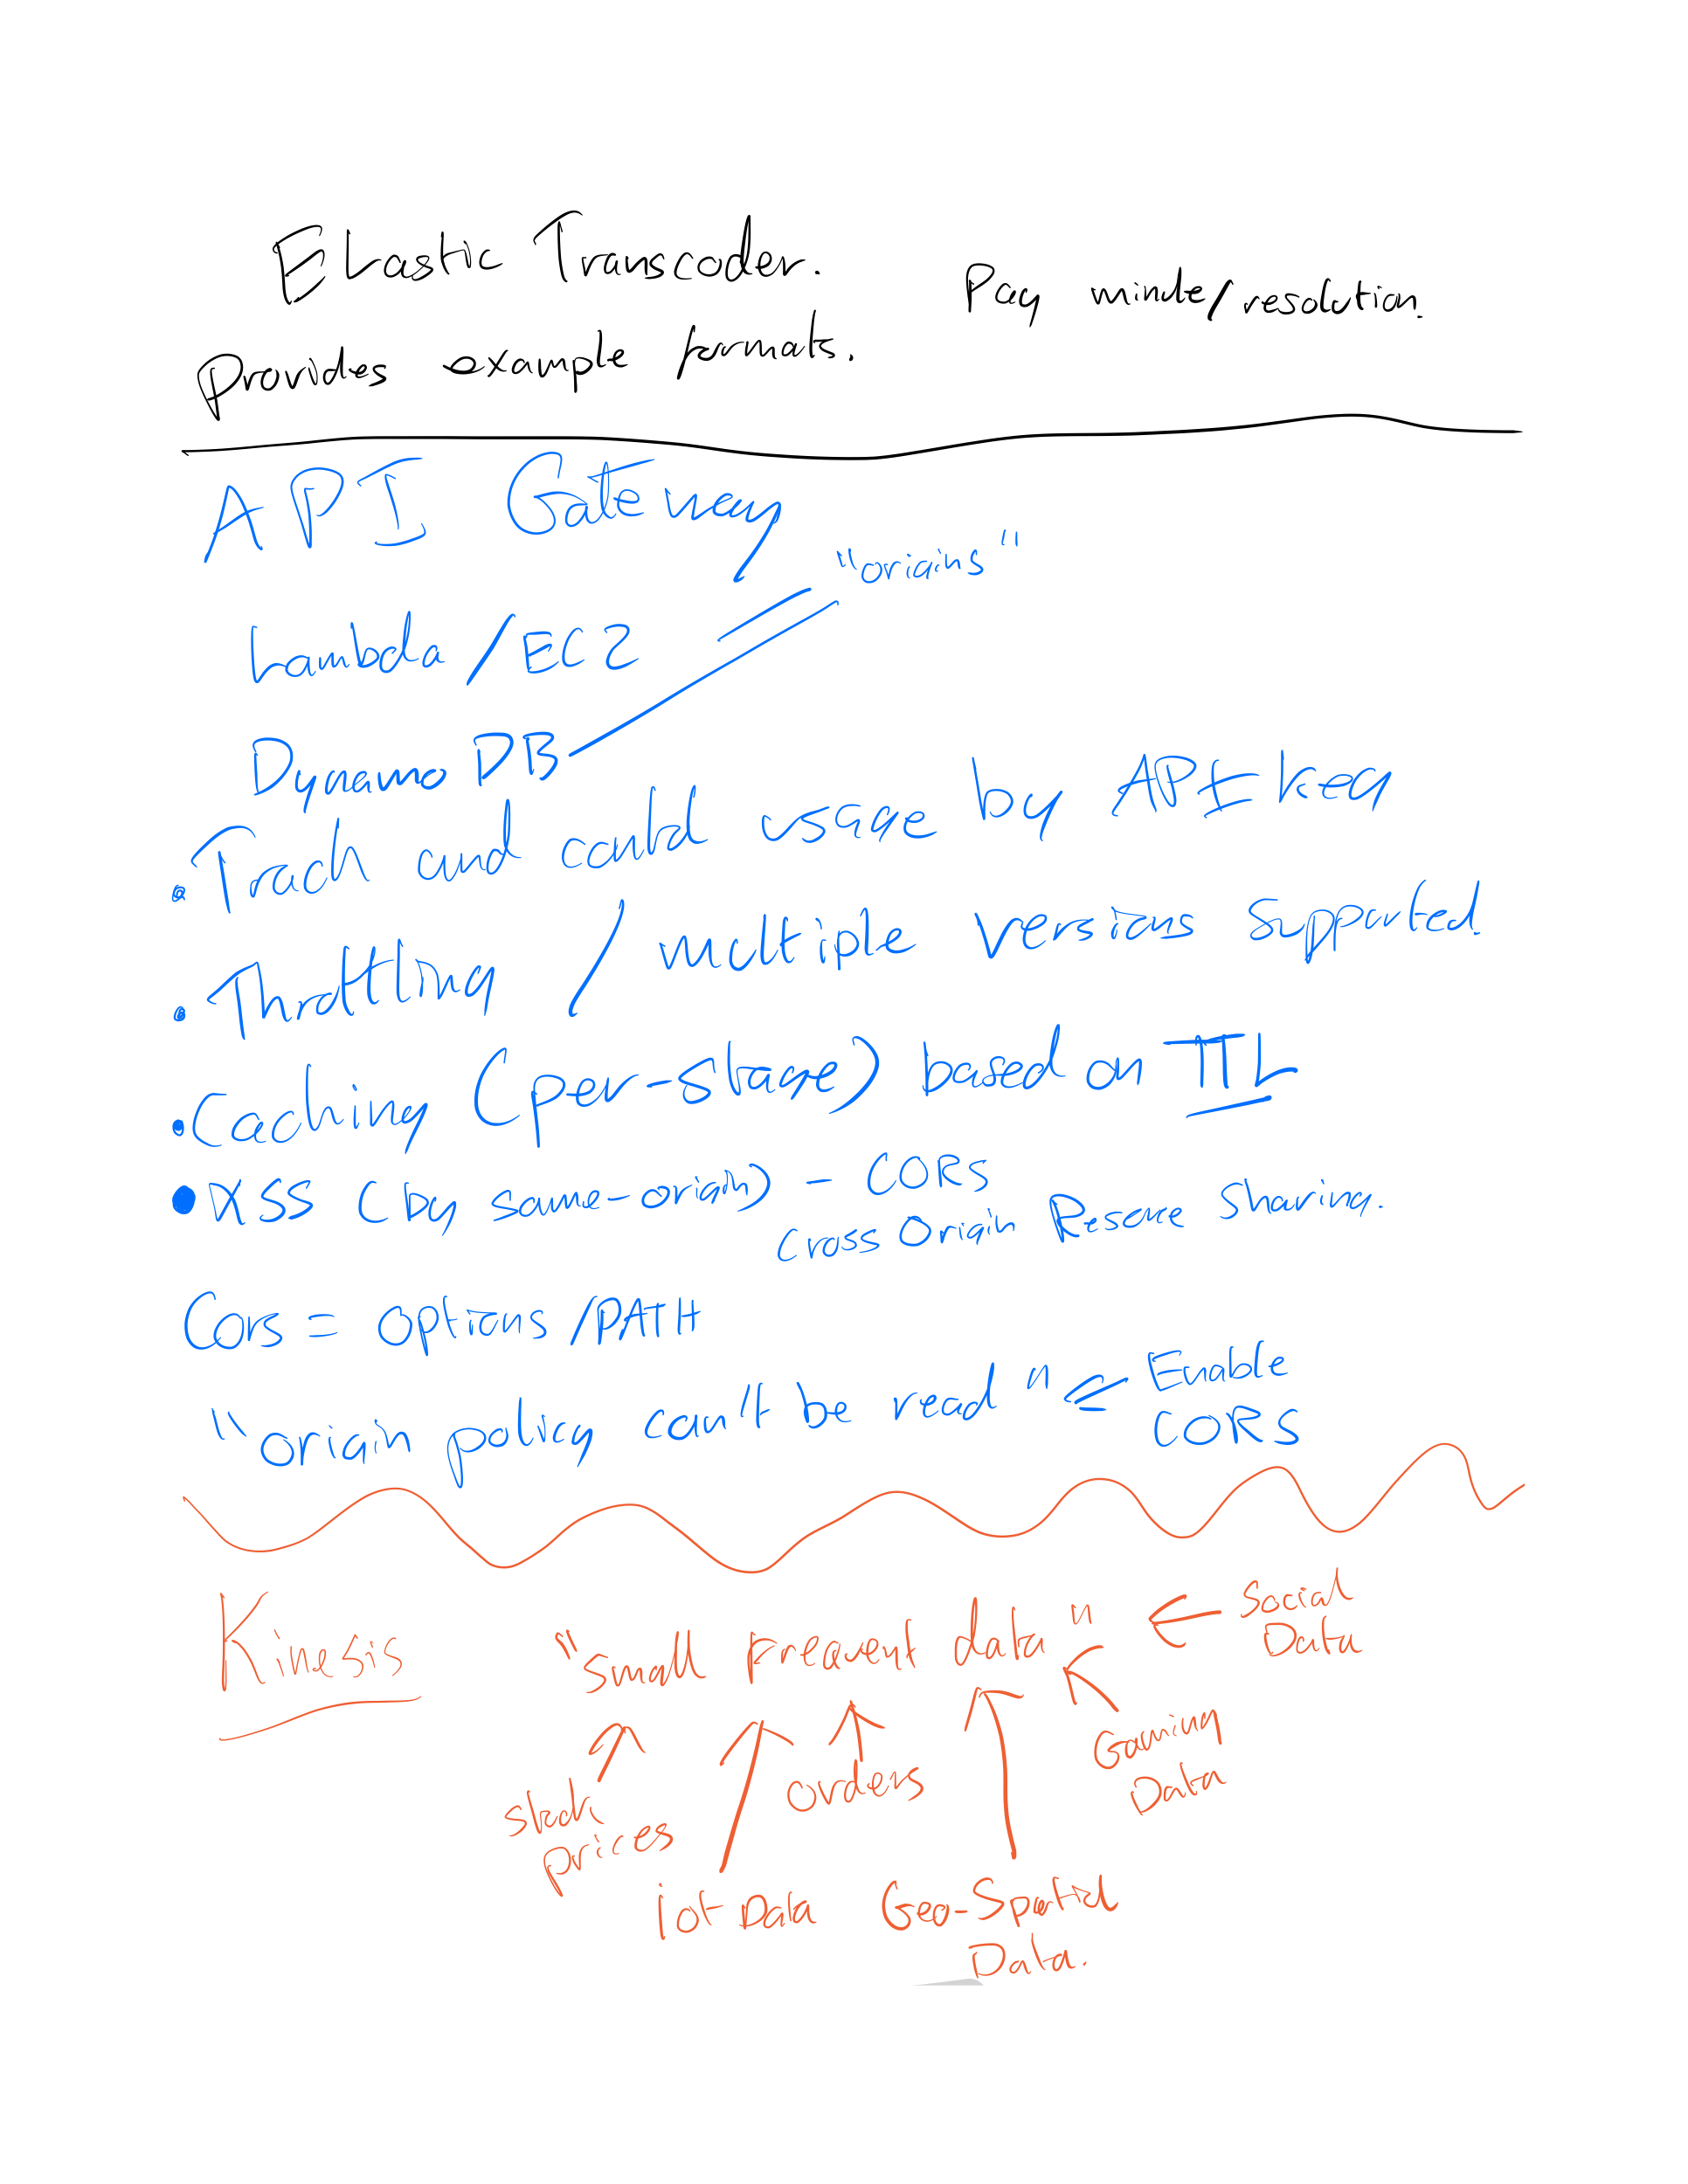 Elastic Transcoder.
Pay minute/resolution.
Provides example formats.
API Gateway
"origins"
Lambda / EC2
Dynamo DB
• Track and control usage by API key
• Throttling / multiple versions supported.
• Caching (per-stage) based on TTL
• XSS (by same-origin) - CORS
Cross Origin Resource Sharing.
Cors = options /PATH
"origin policy can't be read" <= Enable
CORS
Kinesis
"small frequent data" ← Social
Data
Gaming
Data
orders
stock
prices
iot Data
Geo-Spatial
Data.